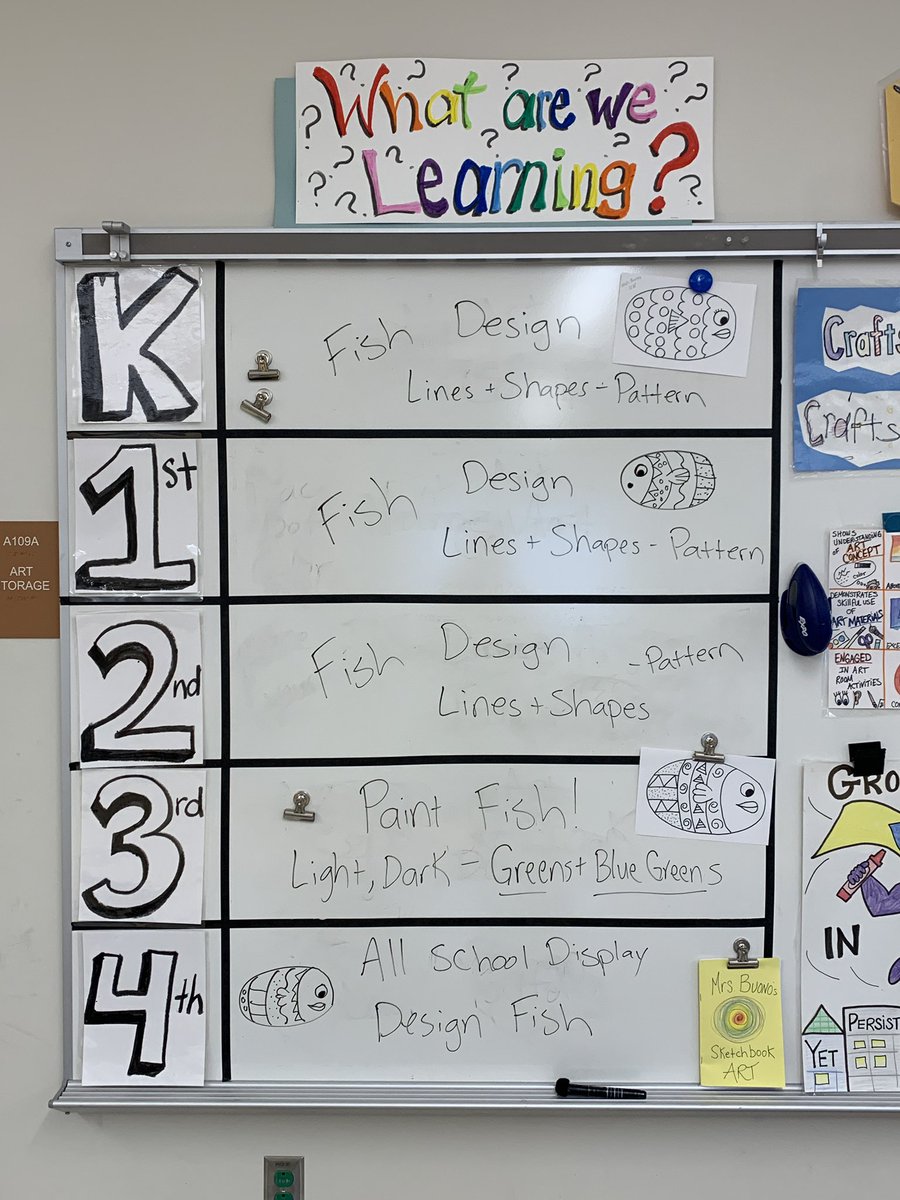 What are we
Learning?
K
Fish Design
Lines + Shapes - Pattern
1st
Fish Design
Lines + Shapes - Pattern
2nd
Fish Design
- Pattern
Lines + Shapes
3rd
Paint Fish!
Light, Dark - Greens + Blue Greens
4th
All School Display
Design Fish
Mrs Buono's
Sketchbook
ART
A109A
ART
TORAGE
Crafts
Crafts
SHOWS
UNDERSTANDING
OF ART
CONCEPT
Color
DEMONSTRATES
SKILLFUL USE
OF
ART MATERIALS
ENGAGED
IN ART
ROOM
ACTIVITIES
GRO
IN
YET
PERSIST